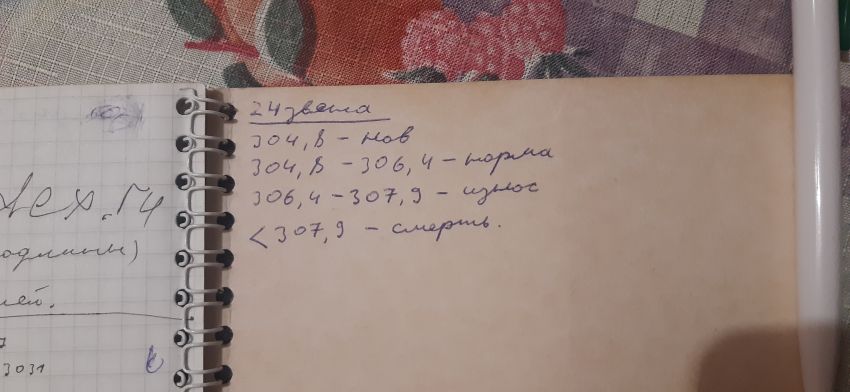 24 звена
304,8 - нов
304,8 - 306,4 - норма
306,4 - 307,9 - износ
< 307,9 - смерть.
лех.ги
одлины)
лей.
7
3031